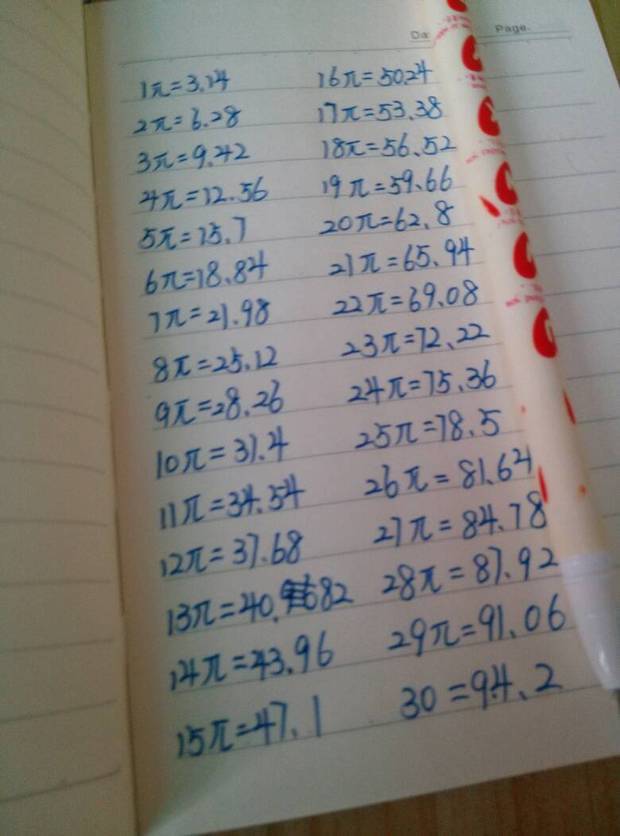 Da
Page.
1π=3.14
2π=6.28
3π=9.42
4π=12.56
5π=15.7
6π=18.84
7π=21.98
8π=25.12
9π=28.26
10π=31.4
11π=34.54
12π=37.68
13π=40.82
14π=43.96
15π=47.1
16π=50.24
17π=53.38
18π=56.52
19π=59.66
20π=62.8
21π=65.94
22π=69.08
23π=72.22
24π=75.36
25π=78.5
26π=81.64
27π=84.78
28π=87.92
29π=91.06
30=94.2